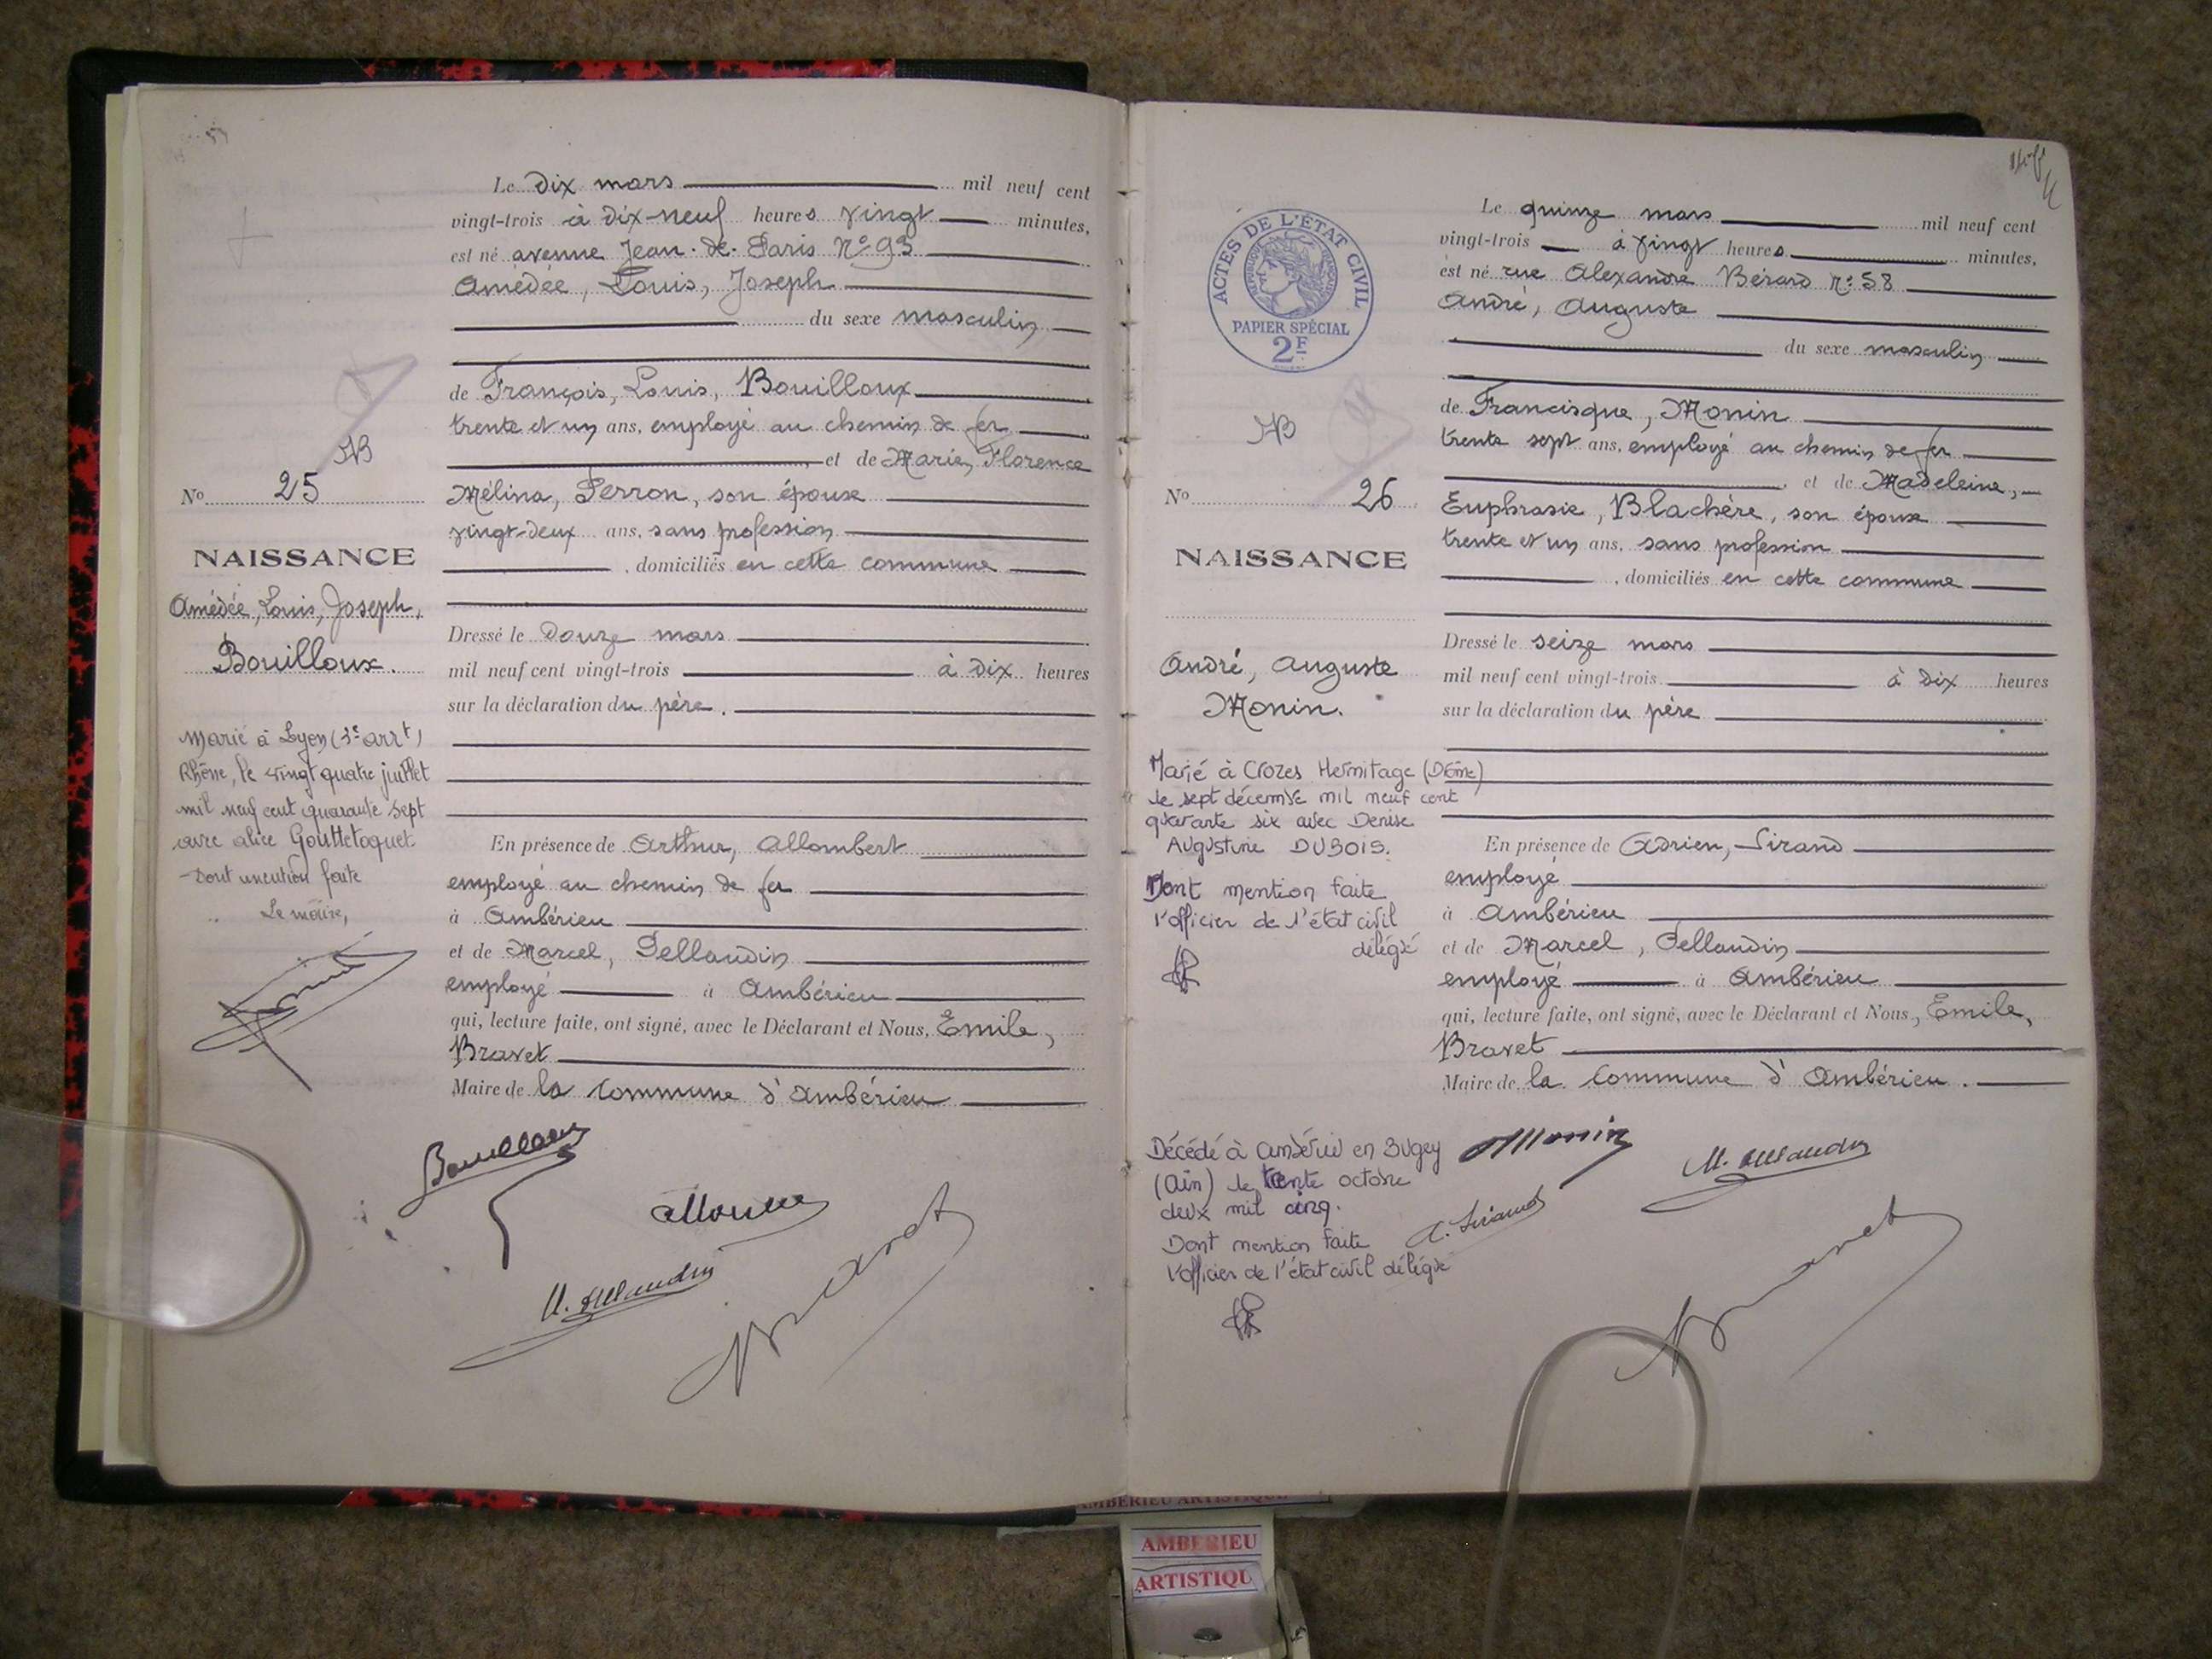 Le dix mars mil neuf cent
vingt-trois à dix-neuf heures vingt minutes,
est né avenue Jean-de-Paris N° 93
Amédée, Louis, Joseph
du sexe masculin
de François, Louis, Bouilloux
trente et un ans, employé au chemin de fer
et de Marie, Florence
Mélina, Perron, son épouse
vingt-deux ans, sans profession
, domiciliés en cette commune
Dressé le douze mars
mil neuf cent vingt-trois à dix heures
sur la déclaration du père.
En présence de Arthur, Allombert
employé au chemin de fer
à Ambérieu
et de Marcel, Pellaudin
employé à Ambérieu
qui, lecture faite, ont signé, avec le Déclarant et Nous, Emile,
Bravet
Maire de la commune d'Ambérieu
N° 25
NAISSANCE
Amédée, Louis, Joseph,
Bouilloux.
Marié à Lyon (3e arrt)
Rhône, le vingt quatre juillet
mil neuf cent quarante sept
avec Alice Gouttetoquet
Dont mention faite
Le maire,
Bouilloux
Bravet
ACTES DE L'ÉTAT CIVIL
RÉPUBLIQUE FRANÇAISE
PAPIER SPÉCIAL
2F
Le quinze mars mil neuf cent
vingt-trois à vingt heures minutes,
est né rue Alexandre Bérard n° 58
André, Auguste
du sexe masculin
de Francisque, Monin
trente sept ans, employé au chemin de fer
, et de Madeleine,
Euphrasie, Blachère, son épouse
trente et un ans, sans profession
, domiciliés en cette commune
Dressé le seize mars
mil neuf cent vingt-trois à dix heures
sur la déclaration du père
En présence de Adrien, Sirand
employé
à Ambérieu
et de Marcel, Pellaudin
employé à Ambérieu
qui, lecture faite, ont signé, avec le Déclarant et Nous, Emile,
Bravet
Maire de la commune d'Ambérieu.
N° 26
NAISSANCE
André, Auguste
Monin.
Marié à Crozes Hermitage (Drôme)
le sept décembre mil neuf cent
quarante six avec Denise
Augustine DUBOIS.
Dont mention faite
l'officier de l'état civil
délégué
Décédé à Ambérieu en Bugey
(Ain) le trente octobre
deux mil cinq.
Dont mention faite
l'officier de l'état civil délégué
Monin
A. Sirand
Bravet
AMBERIEU ARTISTIQUE
AMBERIEU
ARTISTIQU